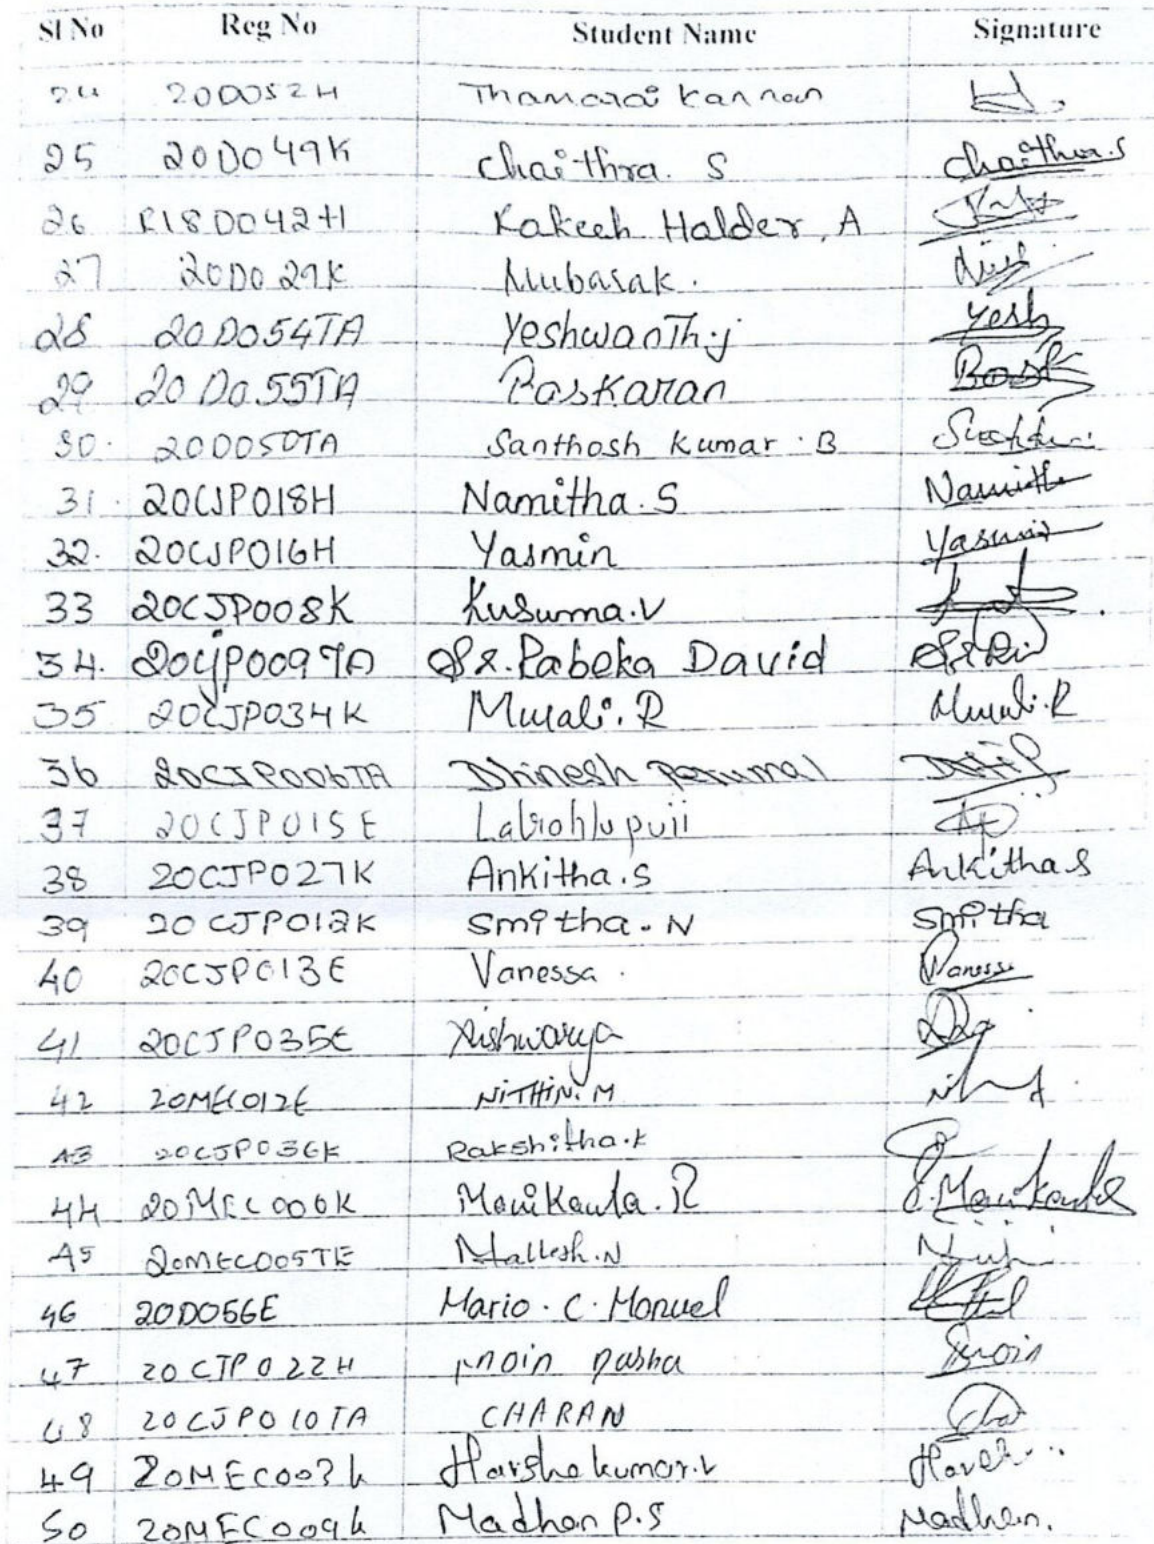 Sl No Reg No Student Name Signature
24 20D052H Thamarai Kannan
25 20D049K Chaithra. S Chaithra.S
26 R18D042H Rakeeh Halder. A
27 20D029K Mubarak.
28 20D054TA Yeshwanth.j Yesh
29 20D055TA Baskaran Bask
30. 20D050TA Santhosh Kumar. B
31. 20CJP018H Namitha. S Namitha
32. 20CJP016H Yasmin Yasmin
33 20CJP008K Kusuma.V
34. 20CJP009TA Sr. Rabeka David
35 20CJP034K Murali. R Murali.R
36 20CJP006TA Dhinesh Perumal
37 20CJP015E
38 20CJP027K Ankitha.S Ankitha.S
39 20CJP012K Smitha. N Smitha
40 20CJP013E Vanessa. Vanessa
41 20CJP035E Aishwarya
42 20MEC012E NITHIN. M
43 20CJP036K Rakshitha.K
44 20MEC006K Manikanta. R
45 20MEC005TE Mallesh.N
46 20D056E Mario. C. Manuel
47 20CJP022H moin pasha
48 20CJP010TA CHARAN
49 20MEC003k Harsha kumar.v
50 20MEC009k Madhan P.S Madhan.